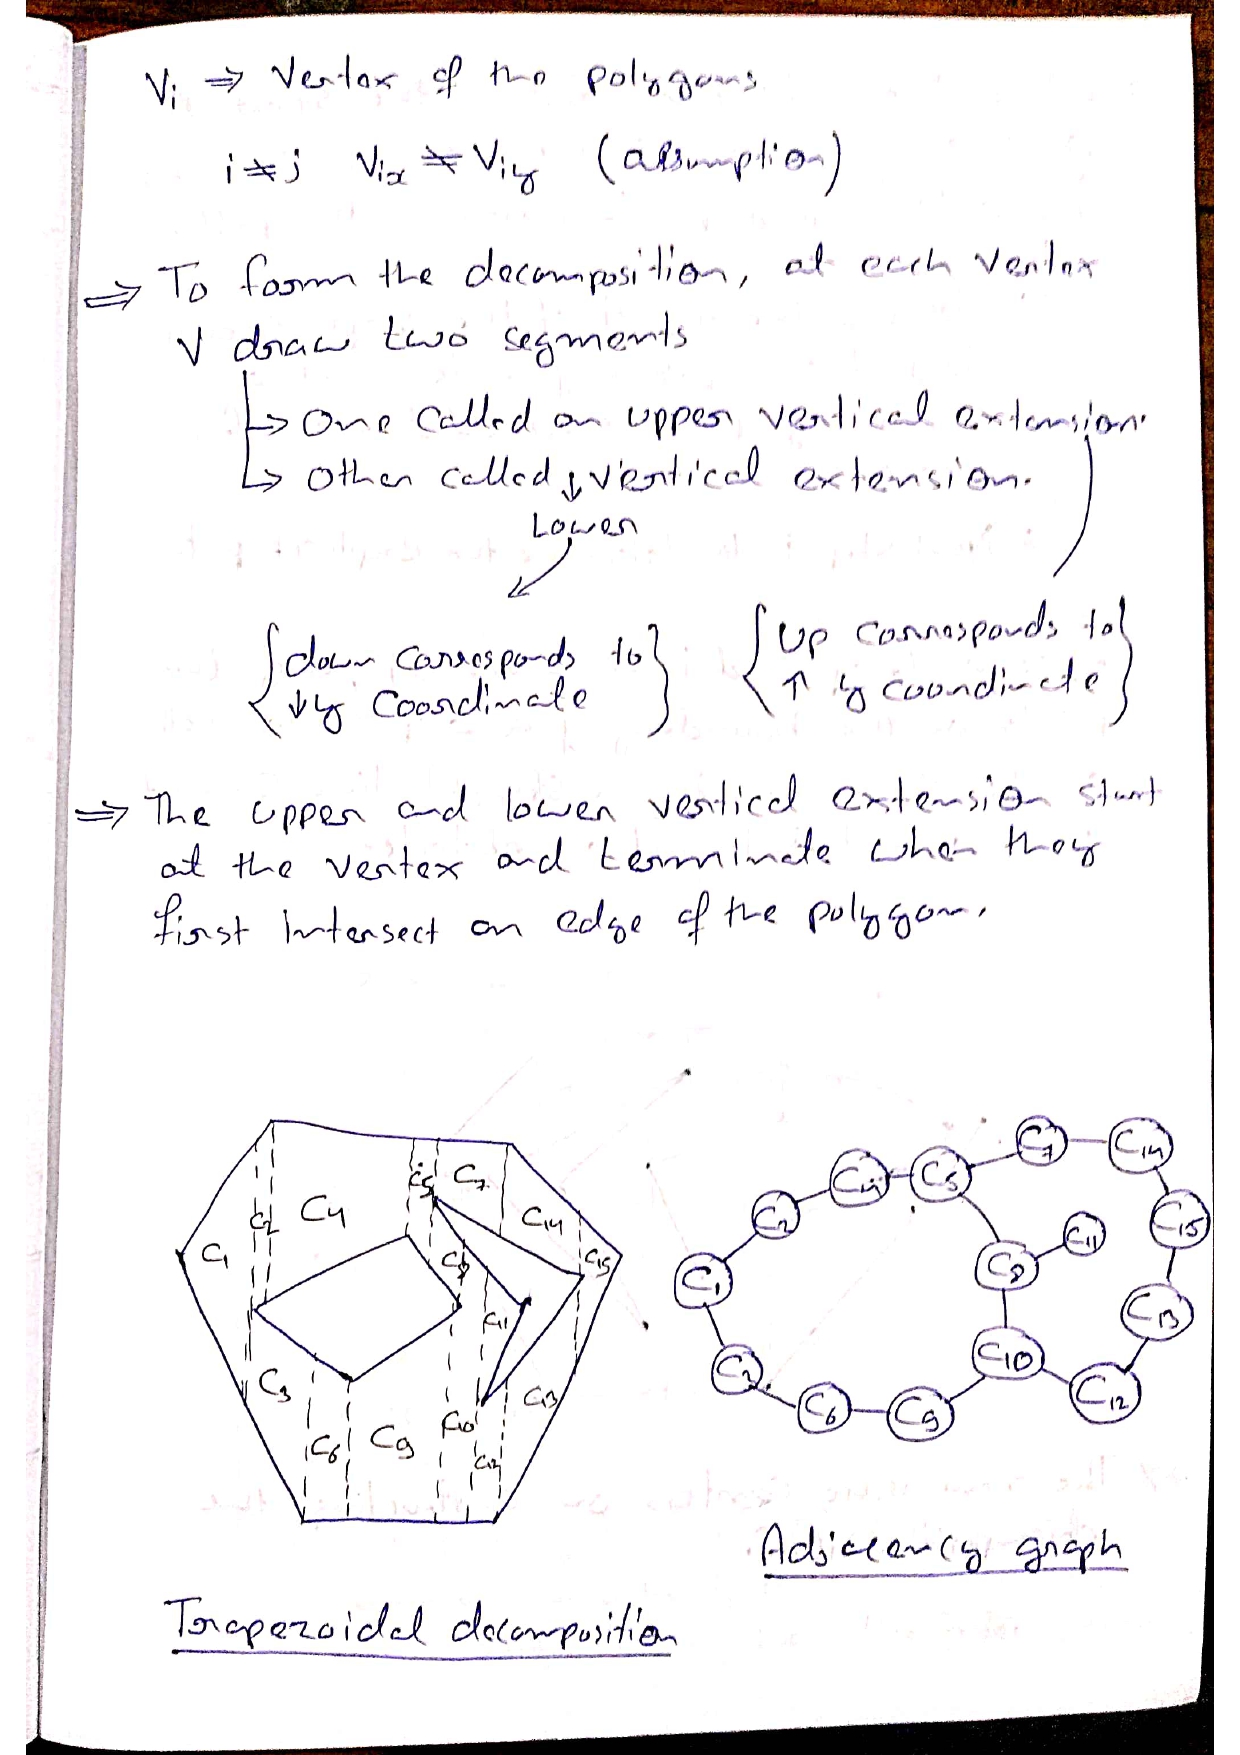 Vi ⇒ Vertex of the polygons
i ≠ j Vix ≠ Viy (assumption)
⇒ To form the decomposition, at each vertex
V draw two segments
↳ One called an upper vertical extension.
↳ Other called ↓ vertical extension.
Lower
{down corresponds to
↓ y coordinate}
{Up corresponds to
↑ y coordinate}
⇒ The upper and lower vertical extension start
at the vertex and terminate when they
first intersect an edge of the polygon.
C1
C2
C4
C5
C7
C14
C15
C8
C11
C3
C6
C9
C10
C12
C13
Trapezoidal decomposition
C1
C2
C4
C5
C7
C14
C15
C11
C8
C13
C10
C12
C6
C9
Adjacency graph